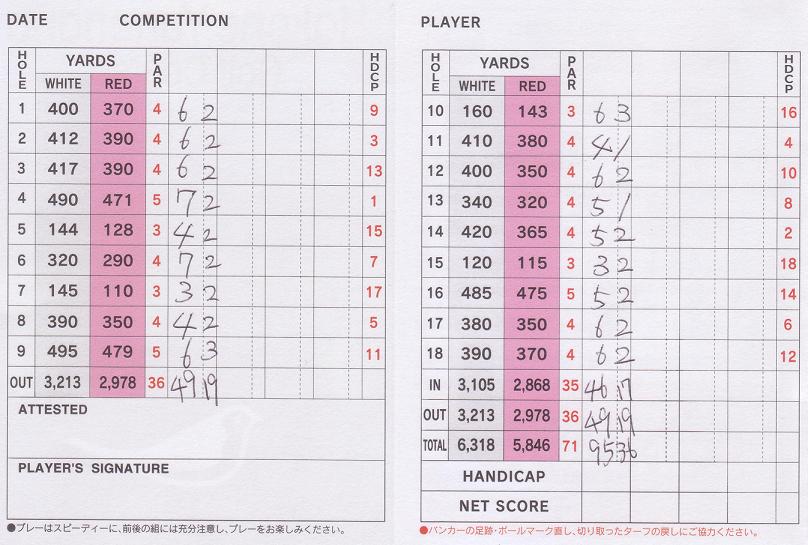 DATE COMPETITION
HOLE YARDS PAR HDCP
WHITE RED
1 400 370 4 6 2 9
2 412 390 4 6 2 3
3 417 390 4 6 2 13
4 490 471 5 7 2 1
5 144 128 3 4 2 15
6 320 290 4 7 2 7
7 145 110 3 3 2 17
8 390 350 4 4 2 5
9 495 479 5 6 3 11
OUT 3,213 2,978 36 49 19
ATTESTED
PLAYER'S SIGNATURE
●プレーはスピーディーに、前後の組には充分注意し、プレーをお楽しみください。
PLAYER
HOLE YARDS PAR HDCP
WHITE RED
10 160 143 3 6 3 16
11 410 380 4 4 1 4
12 400 350 4 6 2 10
13 340 320 4 5 1 8
14 420 365 4 5 2 2
15 120 115 3 3 2 18
16 485 475 5 5 2 14
17 380 350 4 6 2 6
18 390 370 4 6 2 12
IN 3,105 2,868 35 46 17
OUT 3,213 2,978 36 49 19
TOTAL 6,318 5,846 71 95 36
HANDICAP
NET SCORE
●バンカーの足跡・ボールマーク直し、切り取ったターフの戻しにご協力ください。